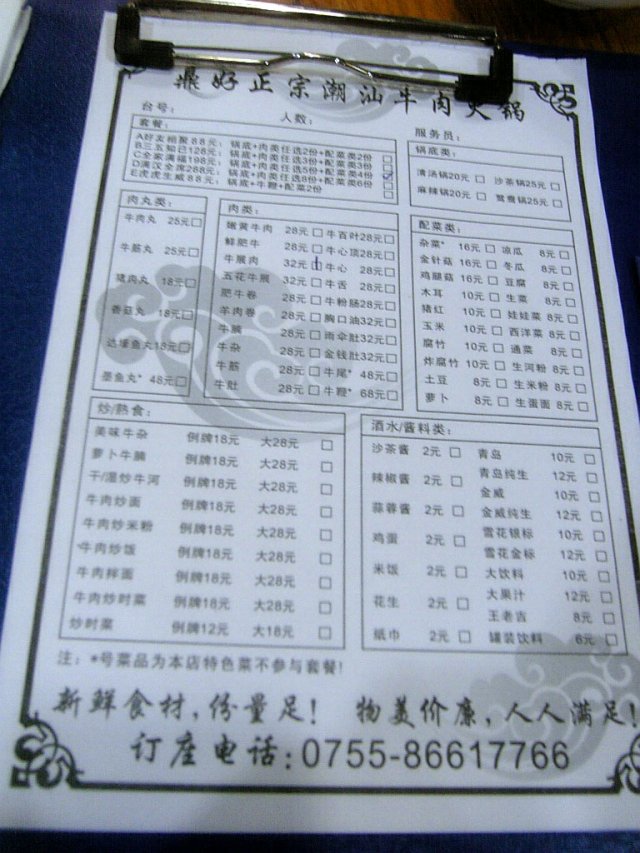 鼎好正宗潮汕牛肉火锅
台号： 人数： 服务员：
套餐：
A好友相聚88元：锅底+肉类任选2份+配菜类2份
B三五知已128元：锅底+肉类任选3份+配菜类3份
C全家满福198元：锅底+肉类任选5份+配菜类4份
D满汉全席288元：锅底+肉类任选8份+配菜类6份
E虎虎生威88元：锅底+牛鞭+配菜2份
锅底类：
清汤锅20元 沙茶锅25元
麻辣锅20元 鸳鸯锅25元
肉丸类：
牛肉丸 25元
牛筋丸 25元
猪肉丸 18元
香菇丸 18元
达濠鱼丸18元
墨鱼丸* 48元
肉类：
嫩黄牛肉 28元 牛百叶28元
鲜肥牛 28元 牛心顶28元
牛展肉 32元 牛心 28元
五花牛展 32元 牛舌 28元
肥牛卷 28元 牛粉肠28元
羊肉卷 28元 胸口油32元
牛腩 28元 雨伞肚32元
牛杂 28元 金钱肚32元
牛筋 28元 牛尾* 48元
牛肚 28元 牛鞭* 68元
配菜类：
杂菜* 16元 凉瓜 8元
金针菇 16元 冬瓜 8元
鸡腿菇 16元 豆腐 8元
木耳 10元 生菜 8元
猪红 10元 娃娃菜 8元
玉米 10元 西洋菜 8元
腐竹 10元 通菜 8元
炸腐竹 10元 生河粉 8元
土豆 8元 生米粉 8元
萝卜 8元 生蛋面 8元
炒/熟食：
美味牛杂 例牌18元 大28元
萝卜牛腩 例牌18元 大28元
干/湿炒牛河 例牌18元 大28元
牛肉炒面 例牌18元 大28元
牛肉炒米粉 例牌18元 大28元
牛肉炒饭 例牌18元 大28元
牛肉拌面 例牌18元 大28元
牛肉炒时菜 例牌18元 大28元
炒时菜 例牌12元 大18元
酒水/酱料类：
沙茶酱 2元
辣椒酱 2元
蒜蓉酱 2元
鸡蛋 2元
米饭 2元
花生 2元
纸巾 2元
青岛 10元
青岛纯生 12元
金威 10元
金威纯生 12元
雪花银标 10元
雪花金标 12元
大饮料 10元
大果汁 12元
王老吉 8元
罐装饮料 6元
注：*号菜品为本店特色菜不参与套餐！
新鲜食材，份量足！ 物美价廉，人人满足！
订座电话：0755-86617766